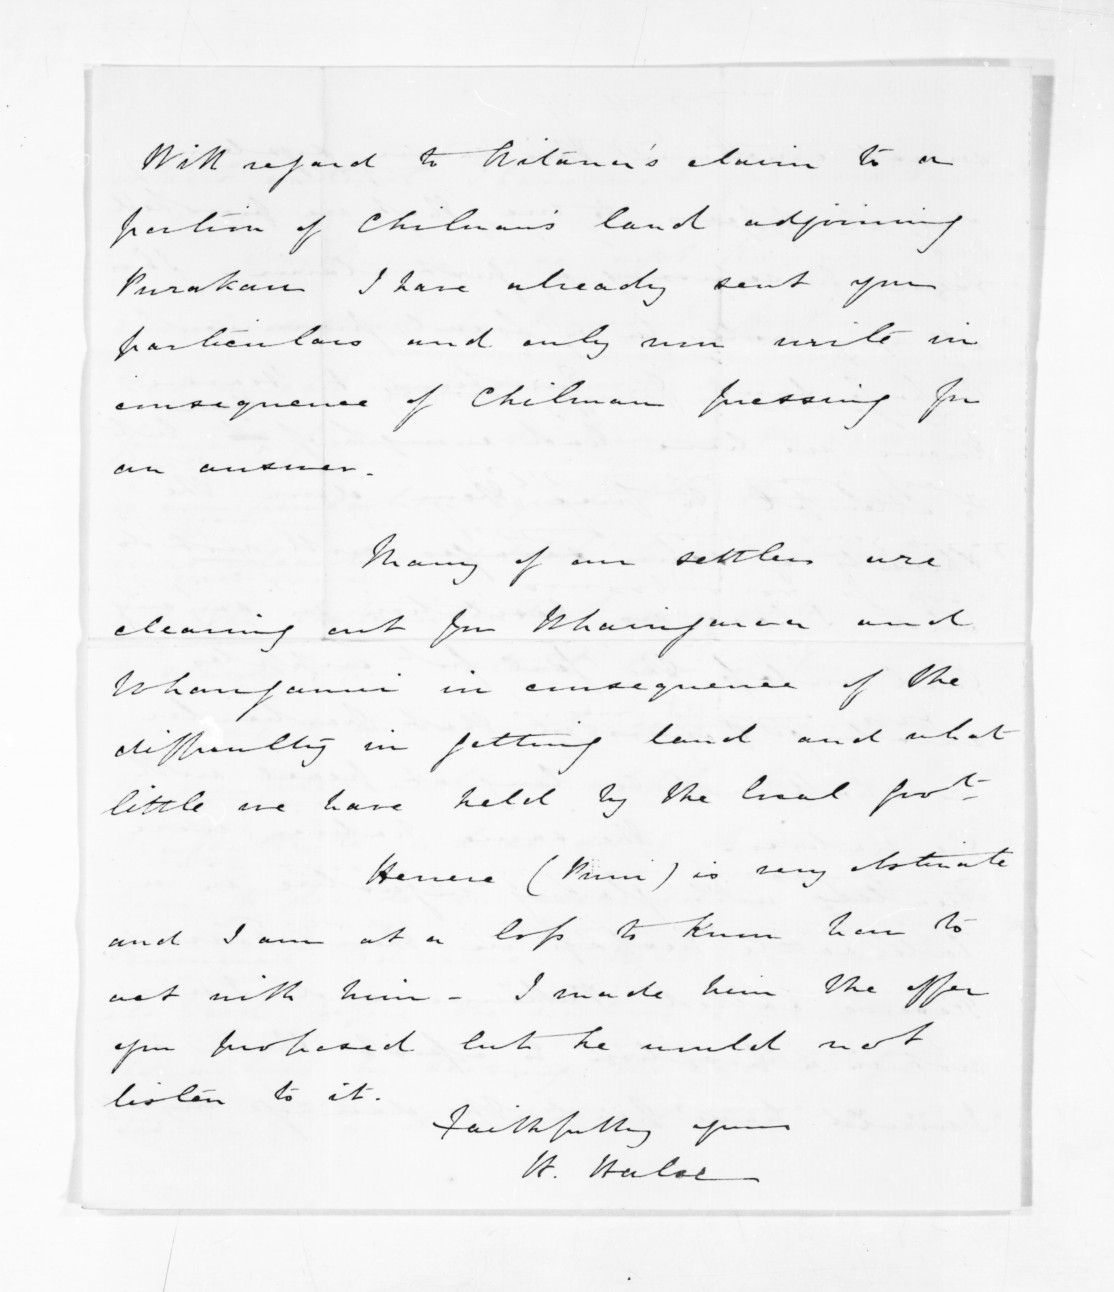 With regard to Witana's claim to a
portion of Chilman's land adjoining
Purakau I have already sent you
particulars and only now write in
consequence of Chilman pressing for
an answer.
Many of our settlers are
clearing out for Whaingaroa and
Whanganui in consequence of the
difficulty in getting land and what
little we have held by the local Govt.
Henere (Puni) is very obstinate
and I am at a loss to know how to
act with him - I made him the offer
you proposed but he would not
listen to it.
Faithfully yours
H. Halse